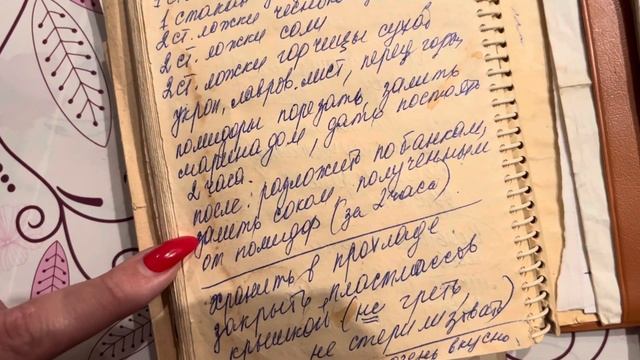 1 стакан
2 ст. ложки чесноку
2 ст. ложки соли
2 ст. ложки горчицы сухой
укроп, лавров. лист, перец горьк,
помидоры порезать, залить
маринадом, дать постоять
2 часа.
после: разложить по банкам,
залить соком полученным
от помидор (за 2 часа).
хранить в прохладе.
закрыть пластмассов
крышкой (не греть
не стерилизовать)
очень вкусно